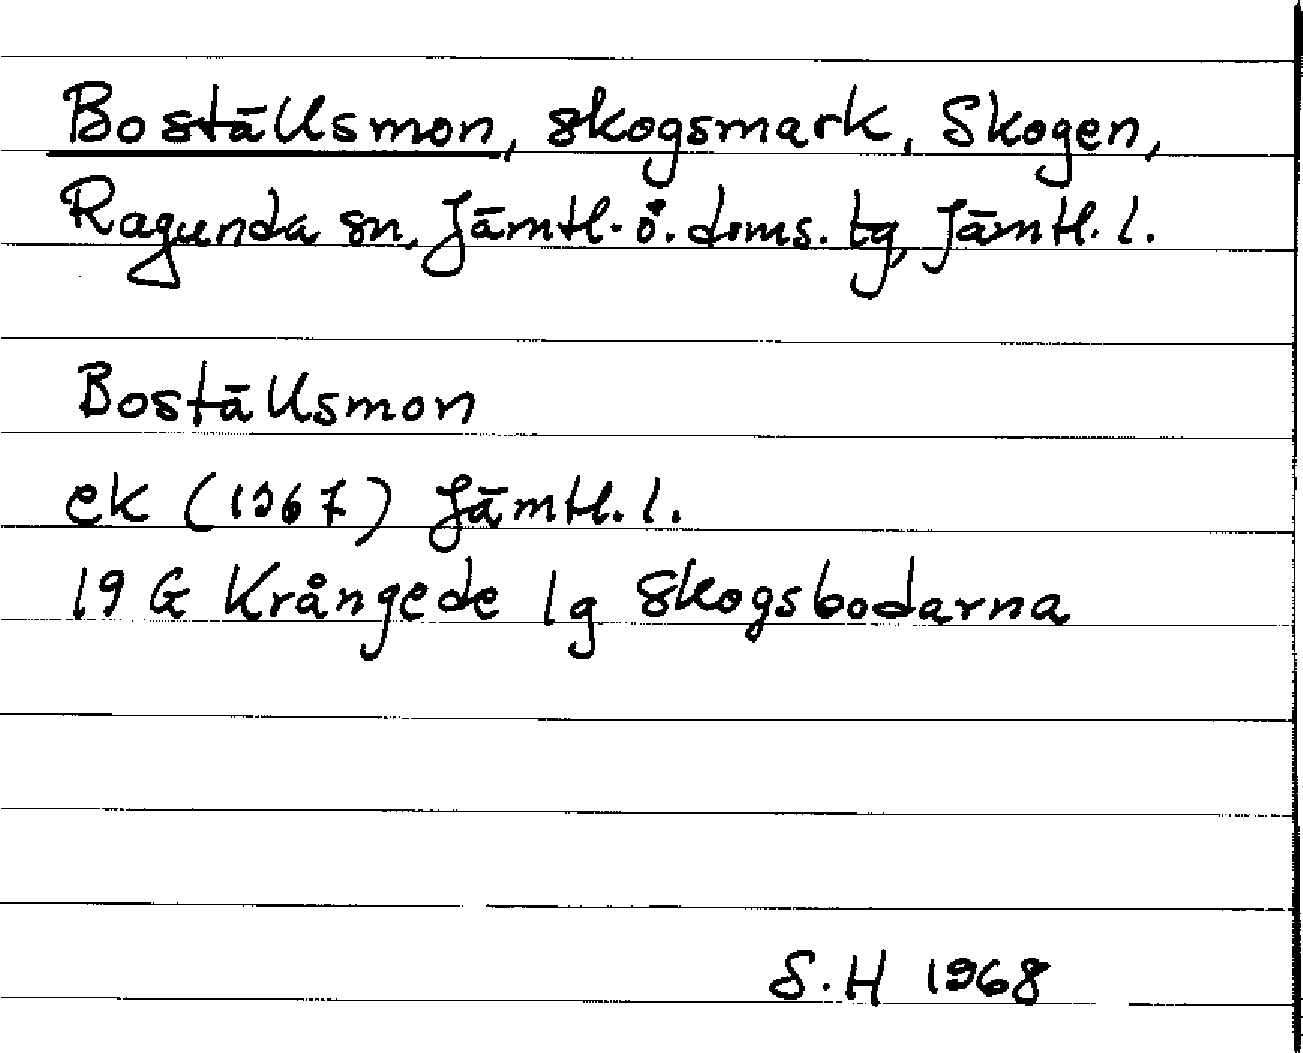 Boställsmon, skogsmark, Skogen,
Ragunda sn, Jämtl. ö. doms. tg, Jämtl. l.
Boställsmon
ek (1967) Jämtl. l.
19 G Krångede 1g Skogsbodarna
S.H 1968